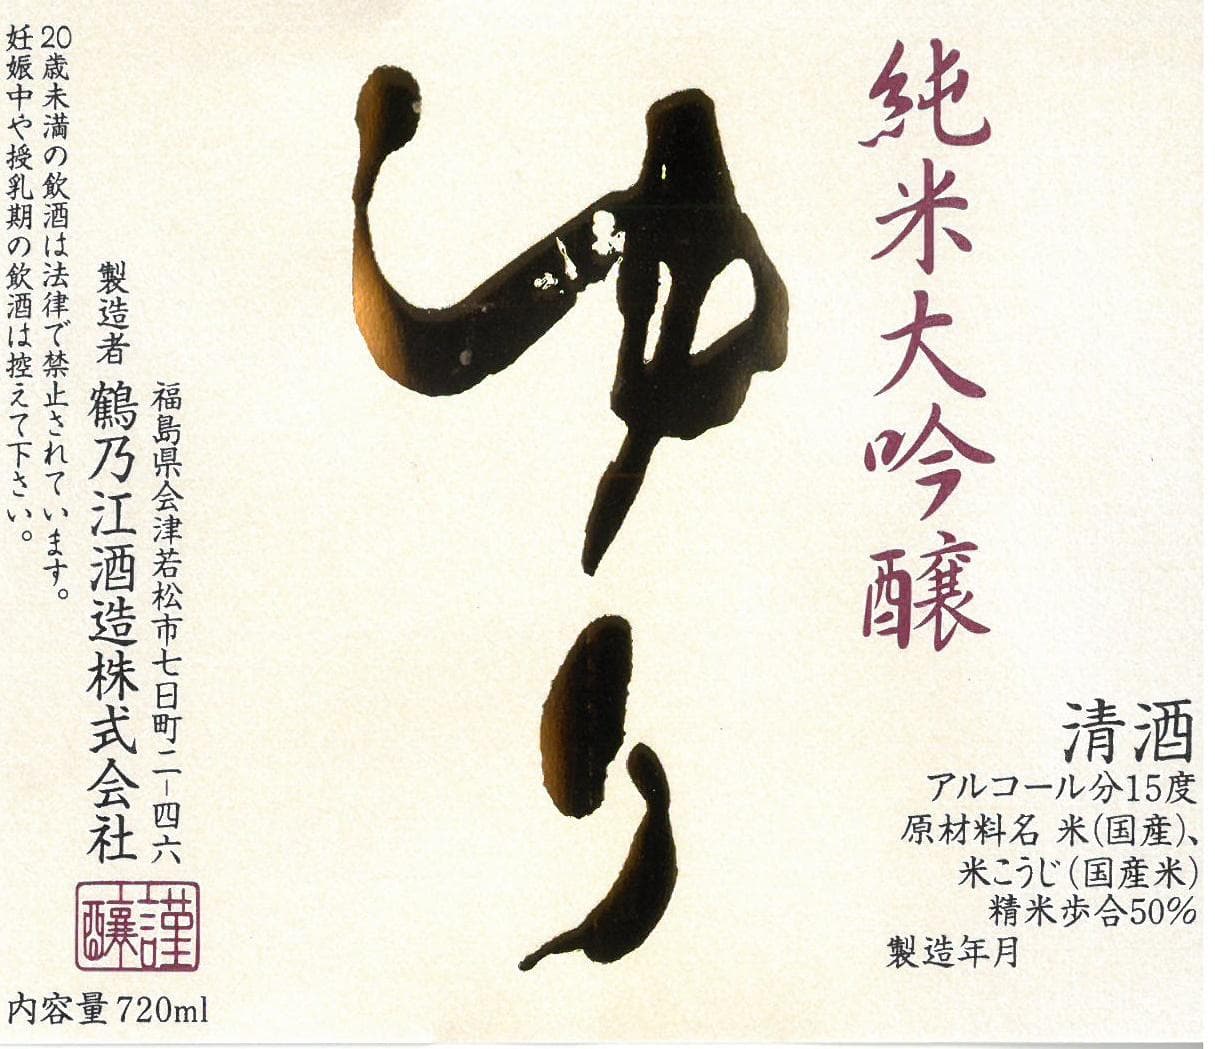 純米大吟醸
清酒
アルコール分15度
原材料名 米(国産)、
米こうじ(国産米)
精米歩合50%
製造年月
ゆり
福島県会津若松市七日町二-四六
製造者 鶴乃江酒造株式会社
謹醸
20歳未満の飲酒は法律で禁止されています。
妊娠中や授乳期の飲酒は控えて下さい。
内容量720ml